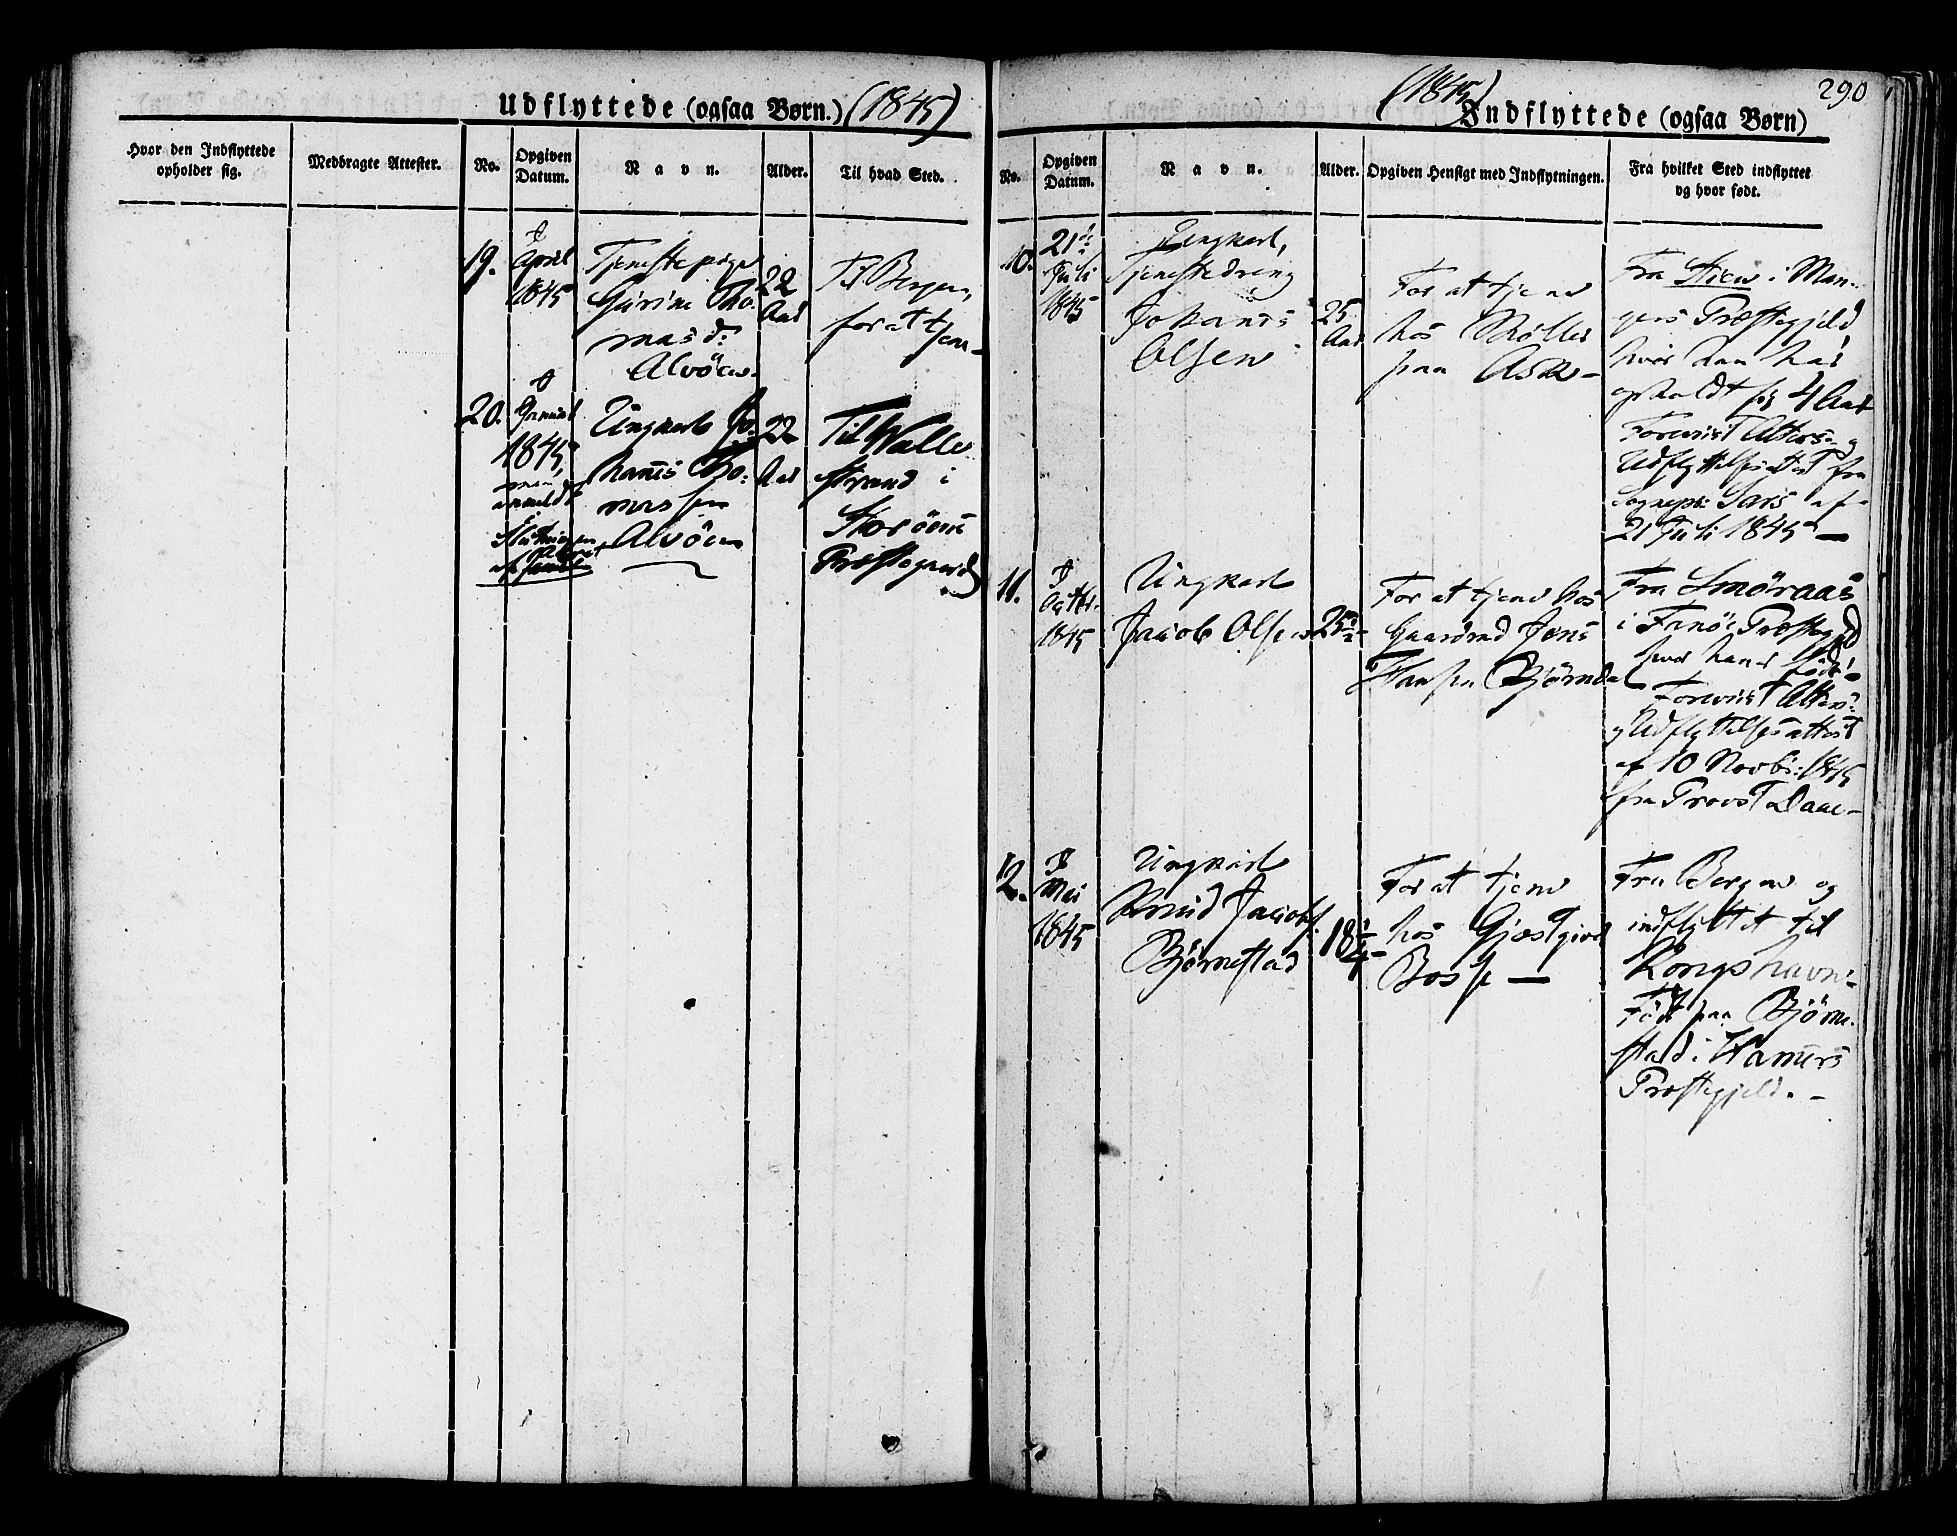 Udflyttede (ogsaa Børn.) (1845)
Hvor den Indflyttede
opholder sig.
Medbragte Attester.
No.
Opgiven
Datum.
Navn.
Alder.
Til hvad Sted.
19.
I
April
1845
Tjenestepige
Gurine Tho-
masd:
Alvöen.
22
Aar
Til Bergen,
for at tjen-
20.
I
1845,
anmeldt
Ungkarl Jo-
hanes Tho-
massen
Alvöen
22
Aar
Til Walle
strand i
Storöens
Præstegaard
290
(1845)
Indflyttede (ogsaa Børn)
No.
Opgiven
Datum.
Navn.
Alder.
Opgiven Hensigt med Indflytningen.
Fra hvilket Sted indflyttet
og hvor født.
10.
21de
Juli
1845
Ungkarl,
Tjenestedreng
Johanes
Olsen
25
Aar
For at tjene
hos Möller
paa Ask-
Fra Stien i Man-
gers Præstegjeld
hvor han har
opholdt sig 4 Aar
Foreviist Alters- og
Udflyttelsesattest fra
Sognepr: Sars af
21 Juli 1845 —
11.
I
Octbr.
1845
Ungkarl
Jacob Olsen
25
For at tjene hos
Gaardmd Jens
Hansen Björndal
Fra Smöraas
i Fanöe Præstegjeld
hvor han er född-
Foreviist Alters-
og Udflyttelsesattest
af 10 Novbr: 1845
fra Provst Daae-
12.
I
Mai
1845
Ungkarl
Knud Jacobs.
Björnestad
18 1/4
For at tjene
hos Gjæstgiver
Bosse —
Fra Bergen og
indflyttet til
Kongshavn-
Född paa Björne-
stad i Hamers
Præstegjeld. -